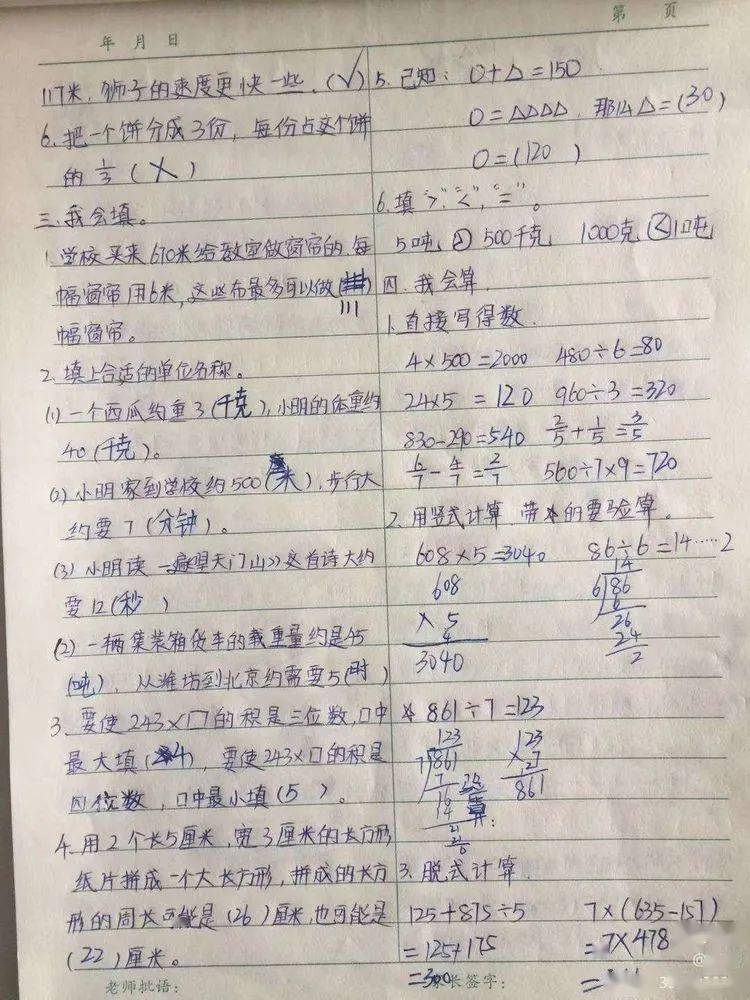 第 页
年 月 日
117米,狮子的速度更快一些.(√)
6.把一个饼分成3份,每份占这个饼
的1/3(×)
三.我会填。
1.学校买来670米给教室做窗帘的.每
幅窗帘用6米,这些布最多可以做(111)
幅窗帘。
2.填上合适的单位名称。
(1)一个西瓜约重3(千克),小明的体重约
40(千克)。
(2)小明家到学校约500(米),步行大
约要7(分钟)。
(3)小明读《望天门山》这首诗大约
要12(秒)
(2)一辆集装箱货车的载重量约是45
(吨),从潍坊到北京约需要5(时)
3.要使243×口的积是三位数,口中
最大填(4),要使243×口的积是
四位数,口中最小填(5)。
4.用2个长5厘米,宽3厘米的长方形
纸片拼成一个大长方形,拼成的长方
形的周长可能是(26)厘米,也可能是
(22)厘米。
5.已知:O+△=150
O=△△△△,那么△=(30)
O=(120)
6.填">","<","="。
5吨>500千克 1000克<1吨
四.我会算.
1.直接写得数.
4×500=2000 480÷6=80
24×5=120 960÷3=320
830-290=540 2/5+1/5=3/5
6/7-4/7=2/7 560÷7×9=720
2.用竖式计算 带*的要验算。
608×5=3040 86÷6=14……2
608
× 5
4
3040
14
6 86
6
26
24
2
*861÷7=123
123
7 861
7
16
14
21
21
0
验算:
123
×7
861
3.脱式计算
125+875÷5 7×(635-157)
=125+175 =7×478
=300
老师批语: 家长签字: